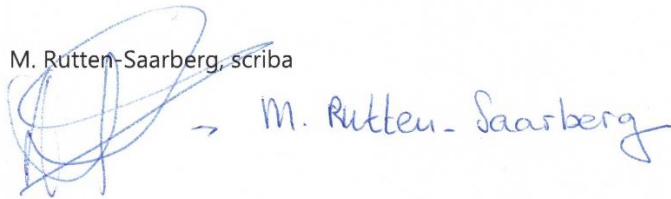 M. Rutten-Saarberg, scriba
→ M. Rutten-Saarberg